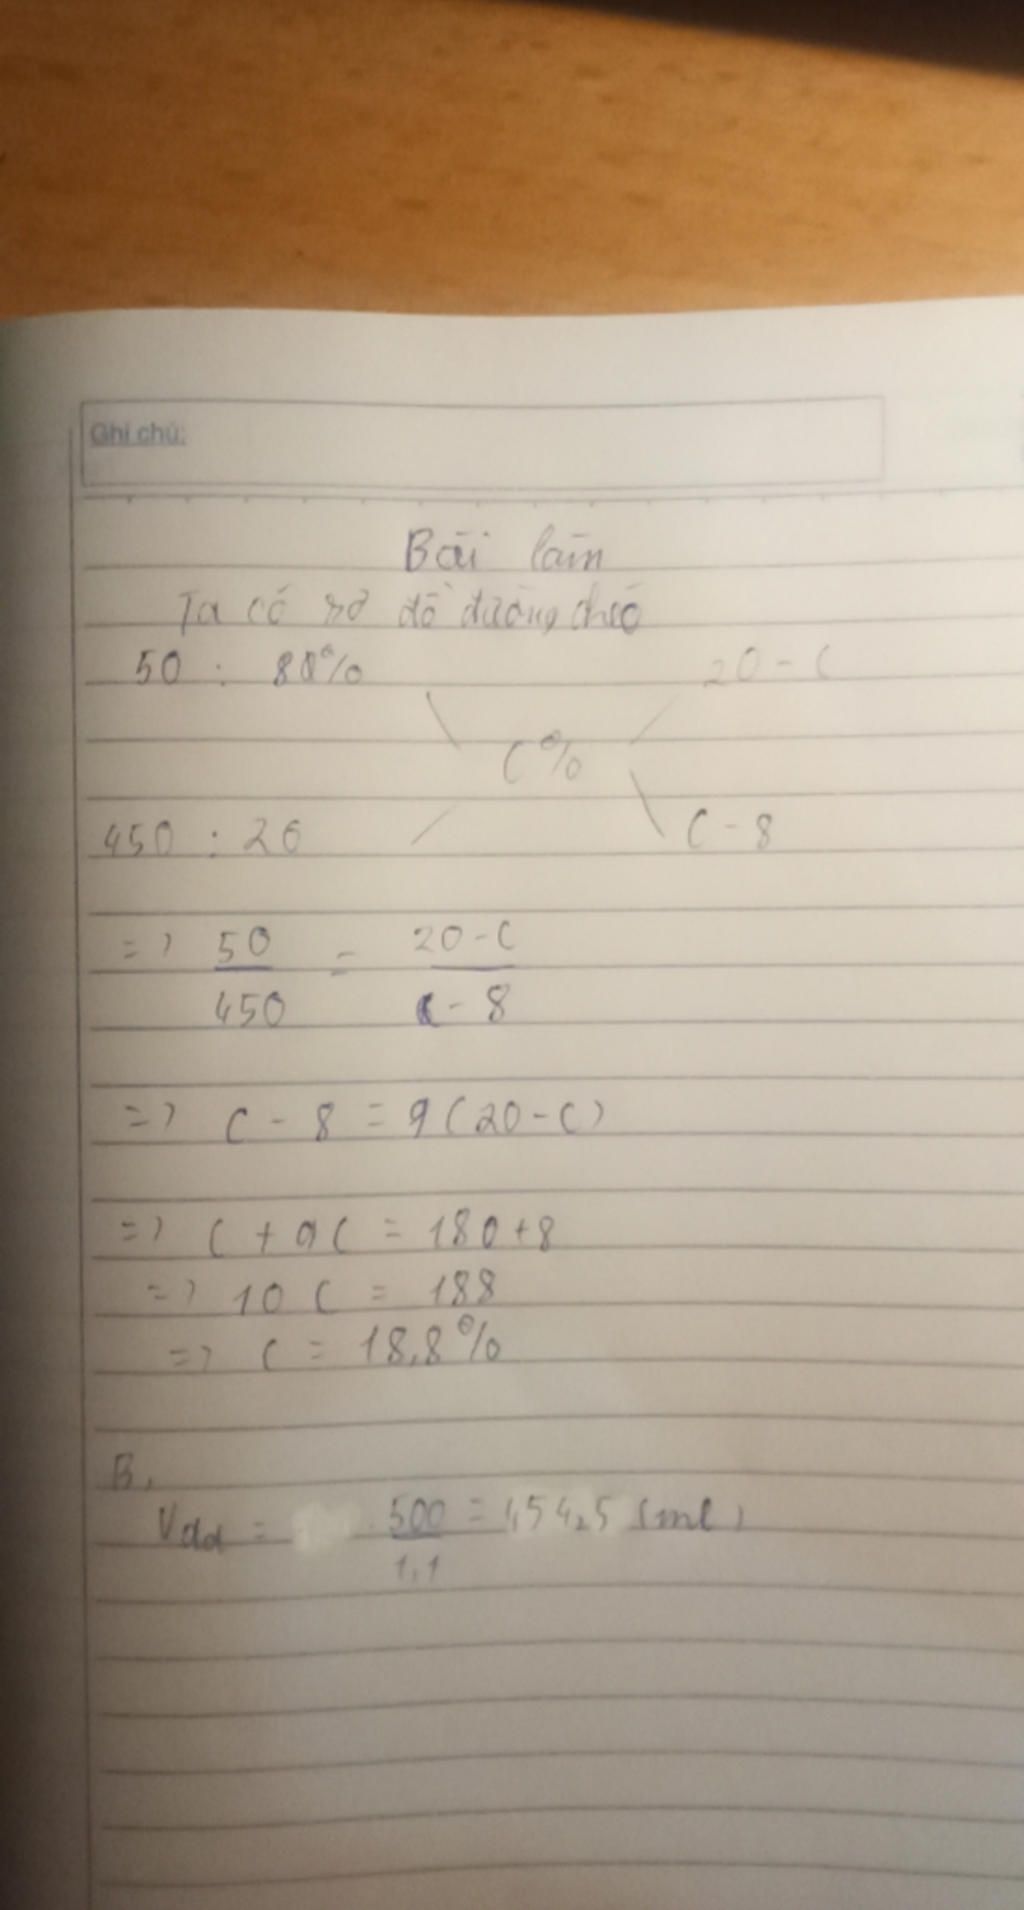 Ghi chú:
Bài làm
Ta có sơ đồ đường chéo
50 : 80% 20 - C
C%
450 : 20 C - 8
=> 50/450 = 20 - C/C - 8
=> C - 8 = 9(20 - C)
=> C + 9C = 180 + 8
=> 10 C = 188
=> C = 18,8%
B,
Vdd = 500/1,1 = 454,5 (ml)